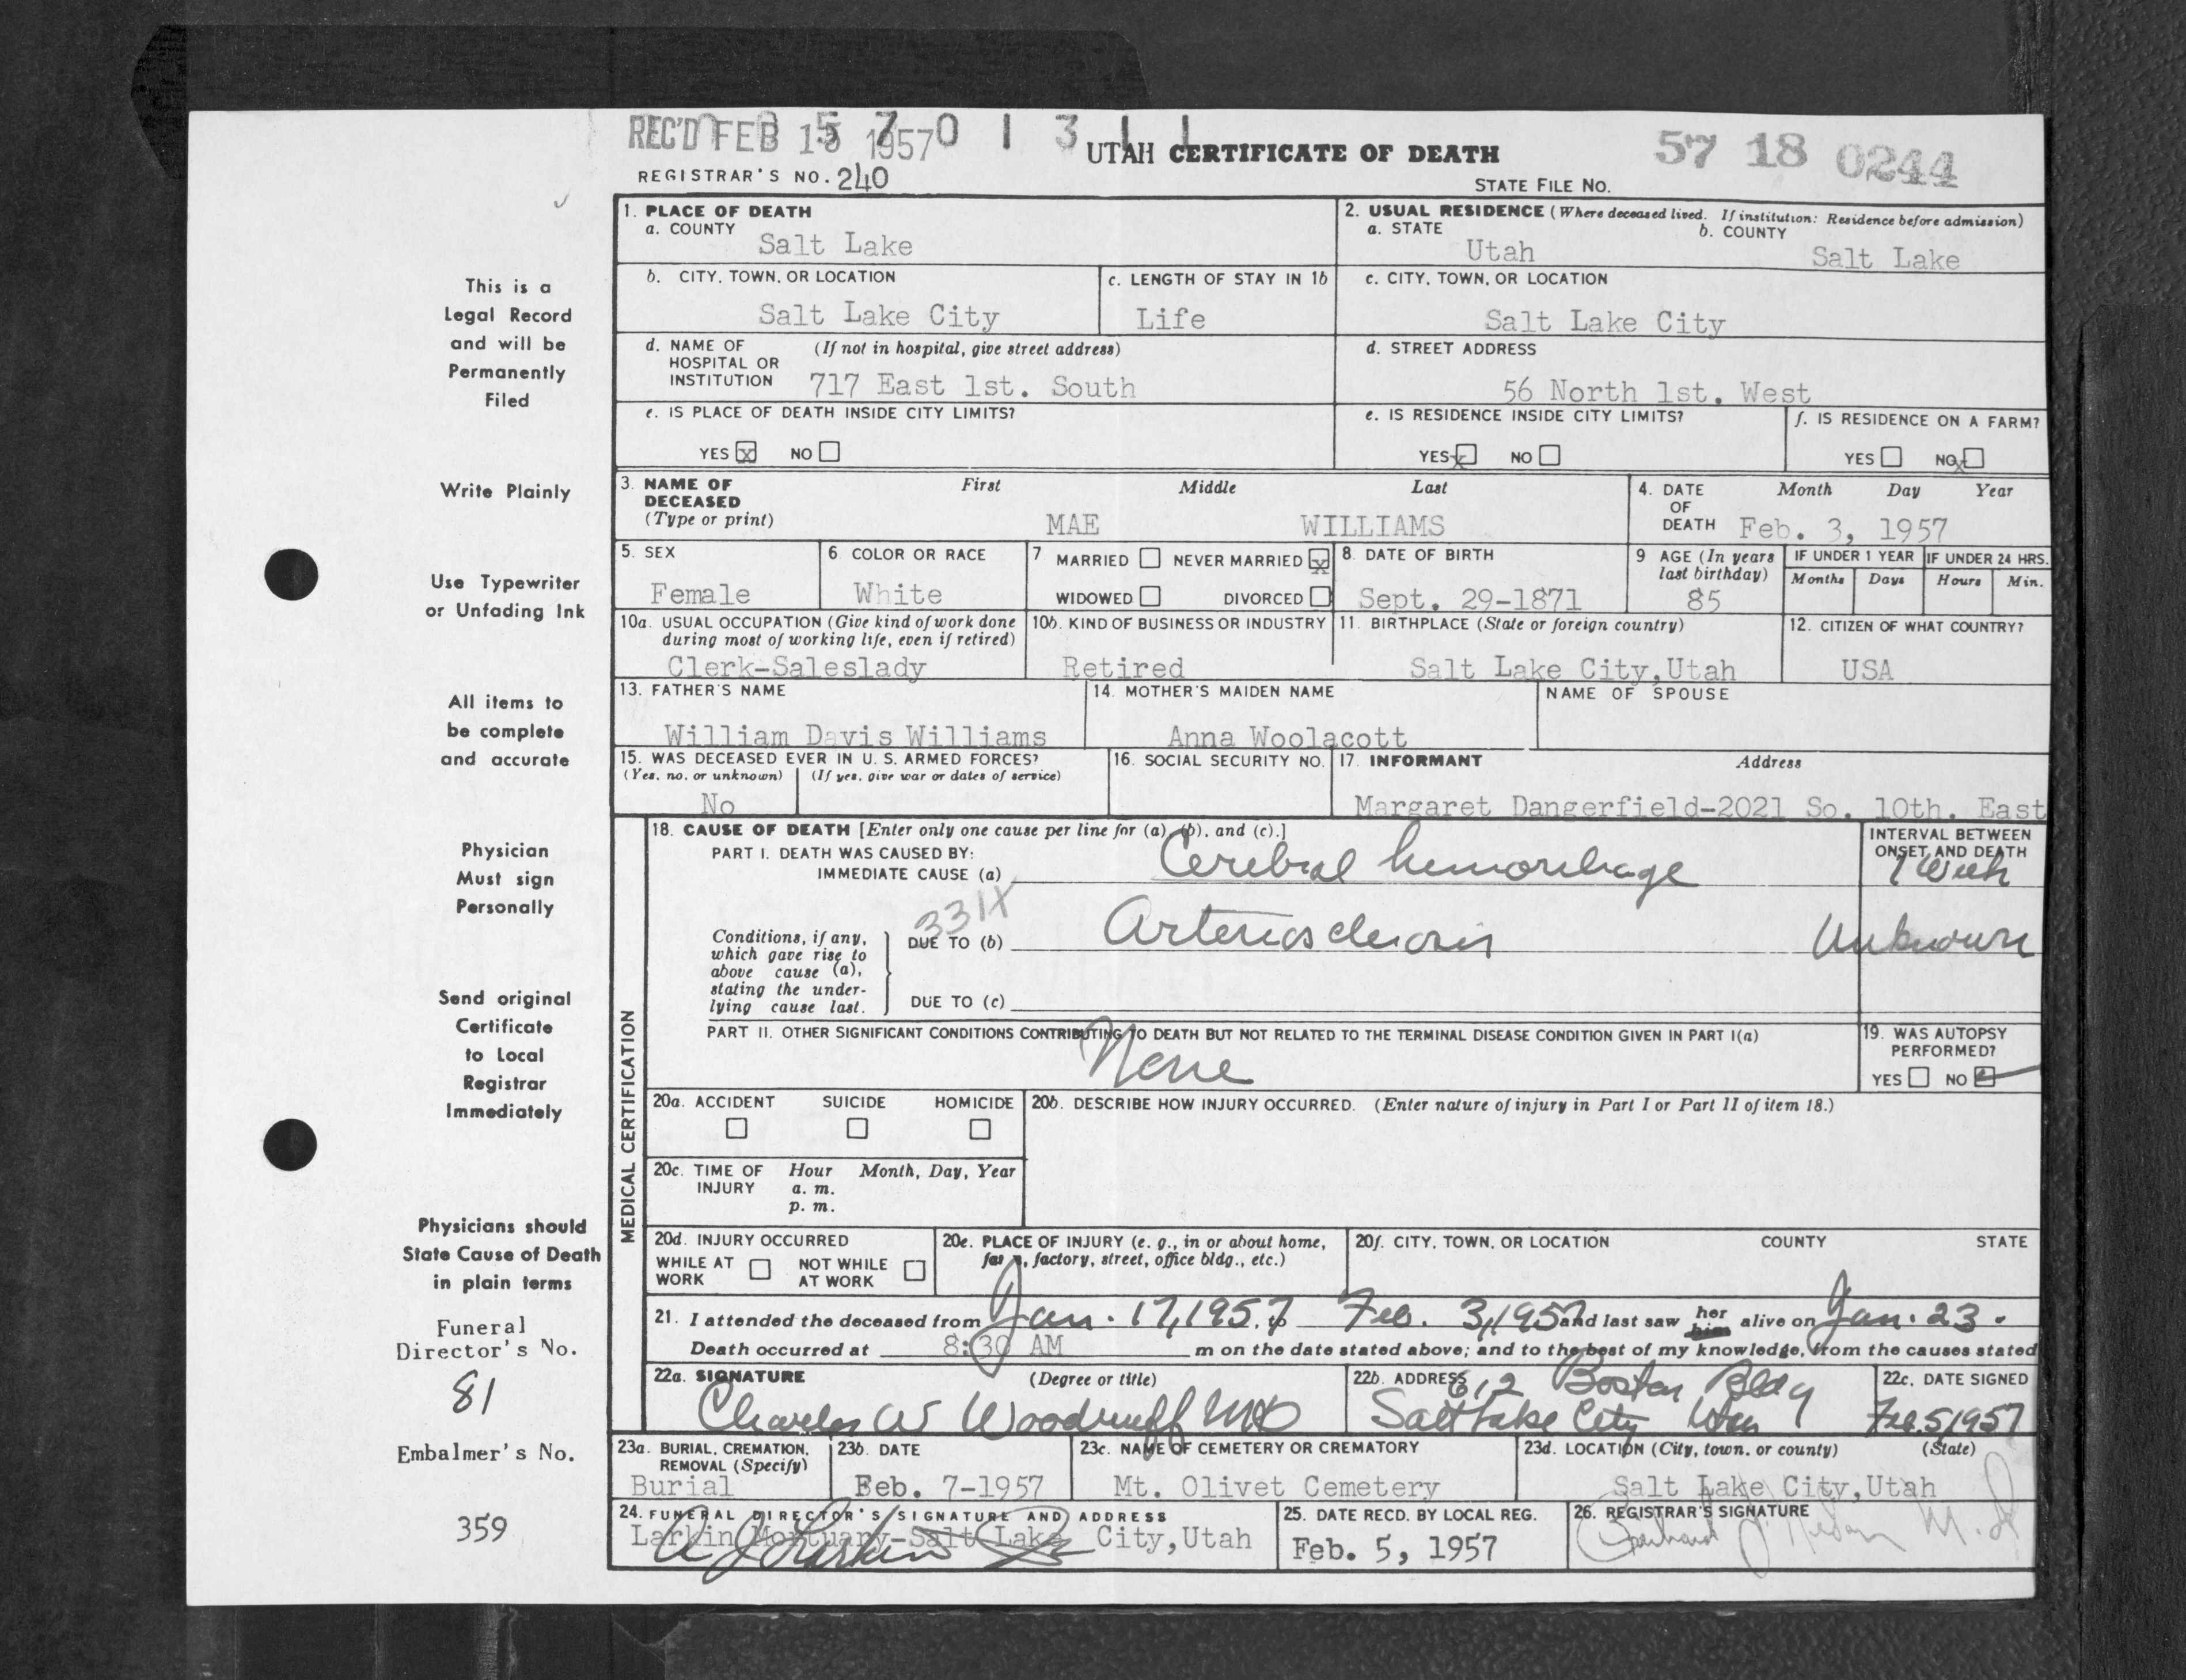 REC'D FEB 15 1957 0 1 3 1 1
UTAH CERTIFICATE OF DEATH
57 18 0244
REGISTRAR'S NO. 240
STATE FILE NO.
1. PLACE OF DEATH
a. COUNTY
Salt Lake
2. USUAL RESIDENCE (Where deceased lived. If institution: Residence before admission)
a. STATE
Utah
b. COUNTY
Salt Lake
b. CITY, TOWN, OR LOCATION
Salt Lake City
c. LENGTH OF STAY IN 1b
Life
c. CITY, TOWN, OR LOCATION
Salt Lake City
d. NAME OF HOSPITAL OR INSTITUTION
(If not in hospital, give street address)
717 East 1st. South
d. STREET ADDRESS
56 North 1st. West
e. IS PLACE OF DEATH INSIDE CITY LIMITS?
YES x NO
e. IS RESIDENCE INSIDE CITY LIMITS?
YES x NO
f. IS RESIDENCE ON A FARM?
YES NO x
3. NAME OF DECEASED
(Type or print)
First Middle Last
MAE WILLIAMS
4. DATE OF DEATH
Month Day Year
Feb. 3, 1957
5. SEX
Female
6. COLOR OR RACE
White
7 MARRIED NEVER MARRIED x
WIDOWED DIVORCED
8. DATE OF BIRTH
Sept. 29-1871
9 AGE (In years last birthday)
85
IF UNDER 1 YEAR
Months Days
IF UNDER 24 HRS.
Hours Min.
10a. USUAL OCCUPATION (Give kind of work done during most of working life, even if retired)
Clerk-Saleslady
10b. KIND OF BUSINESS OR INDUSTRY
Retired
11. BIRTHPLACE (State or foreign country)
Salt Lake City,Utah
12. CITIZEN OF WHAT COUNTRY?
USA
13. FATHER'S NAME
William Davis Williams
14. MOTHER'S MAIDEN NAME
Anna Woolacott
NAME OF SPOUSE
15. WAS DECEASED EVER IN U. S. ARMED FORCES?
(Yes, no, or unknown) (If yes, give war or dates of service)
No
16. SOCIAL SECURITY NO.
17. INFORMANT Address
Margaret Dangerfield-2021 So. 10th. East
MEDICAL CERTIFICATION
18. CAUSE OF DEATH [Enter only one cause per line for (a), (b), and (c).]
PART I. DEATH WAS CAUSED BY:
IMMEDIATE CAUSE (a) Cerebral hemorrhage
INTERVAL BETWEEN ONSET AND DEATH
1 Week
331X
Conditions, if any, which gave rise to above cause (a), stating the underlying cause last.
DUE TO (b) Arteriosclerosis
Unknown
DUE TO (c)
PART II. OTHER SIGNIFICANT CONDITIONS CONTRIBUTING TO DEATH BUT NOT RELATED TO THE TERMINAL DISEASE CONDITION GIVEN IN PART I(a)
None
19. WAS AUTOPSY PERFORMED?
YES NO
20a. ACCIDENT SUICIDE HOMICIDE
20b. DESCRIBE HOW INJURY OCCURRED. (Enter nature of injury in Part I or Part II of item 18.)
20c. TIME OF INJURY
Hour Month, Day, Year
a. m.
p. m.
20d. INJURY OCCURRED
WHILE AT WORK NOT WHILE AT WORK
20e. PLACE OF INJURY (e. g., in or about home, farm, factory, street, office bldg., etc.)
20f. CITY, TOWN, OR LOCATION COUNTY STATE
21. I attended the deceased from Jan. 17, 1957, to Feb. 3, 1957 and last saw her him alive on Jan. 23.
Death occurred at 8:30 AM m on the date stated above; and to the best of my knowledge, from the causes stated
22a. SIGNATURE (Degree or title)
Charles W Woodruff MD
22b. ADDRESS
612 Boston Bldg
Salt Lake City Utah
22c. DATE SIGNED
Feb. 5, 1957
23a. BURIAL, CREMATION, REMOVAL (Specify)
Burial
23b. DATE
Feb. 7-1957
23c. NAME OF CEMETERY OR CREMATORY
Mt. Olivet Cemetery
23d. LOCATION (City, town, or county) (State)
Salt Lake City,Utah
24. FUNERAL DIRECTOR'S SIGNATURE AND ADDRESS
Larkin Mortuary-Salt Lake City,Utah
25. DATE RECD. BY LOCAL REG.
Feb. 5, 1957
26. REGISTRAR'S SIGNATURE
This is a
Legal Record
and will be
Permanently
Filed
Write Plainly
Use Typewriter
or Unfading Ink
All items to
be complete
and accurate
Physician
Must sign
Personally
Send original
Certificate
to Local
Registrar
Immediately
Physicians should
State Cause of Death
in plain terms
Funeral
Director's No.
81
Embalmer's No.
359